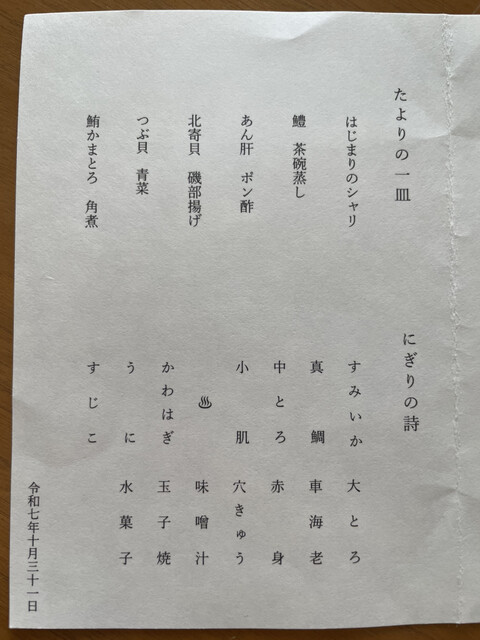 たよりの一皿
はじまりのシャリ
鱧　茶碗蒸し
あん肝　ポン酢
北寄貝　磯部揚げ
つぶ貝　青菜
鮪かまとろ　角煮
にぎりの詩
すみいか　大とろ
真鯛　車海老
中とろ　赤身
小肌　穴きゅう
♨　味噌汁
かわはぎ　玉子焼
うに　水菓子
すじこ
令和七年十月三十一日